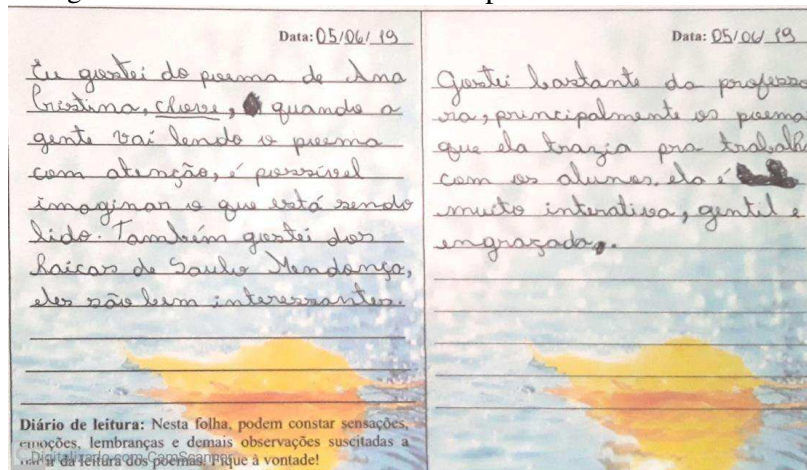 Data: 05/06/19
Eu gostei do poema de Ana
Cristina, chove, quando a
gente vai lendo o poema
com atenção, é possível
imaginar o que está sendo
lido. Também gostei dos
haicas de Saulo Mendonça,
eles são bem interessantes.
Diário de leitura: Nesta folha, podem constar sensações,
emoções, lembranças e demais observações suscitadas a
da leitura dos poemas. Fique à vontade!
Digitalizado com CamScanner
Data: 05/06/19
Gostei bastante da professo
ra, principalmente os poema
que ela trazia pra trabalh
com os alunos. ela é
muito interativa, gentil e
engraçada.